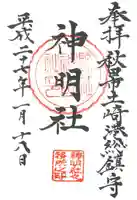 奉拝 秋田土崎湊総鎮守
神明社
平成二十七年一月十八日